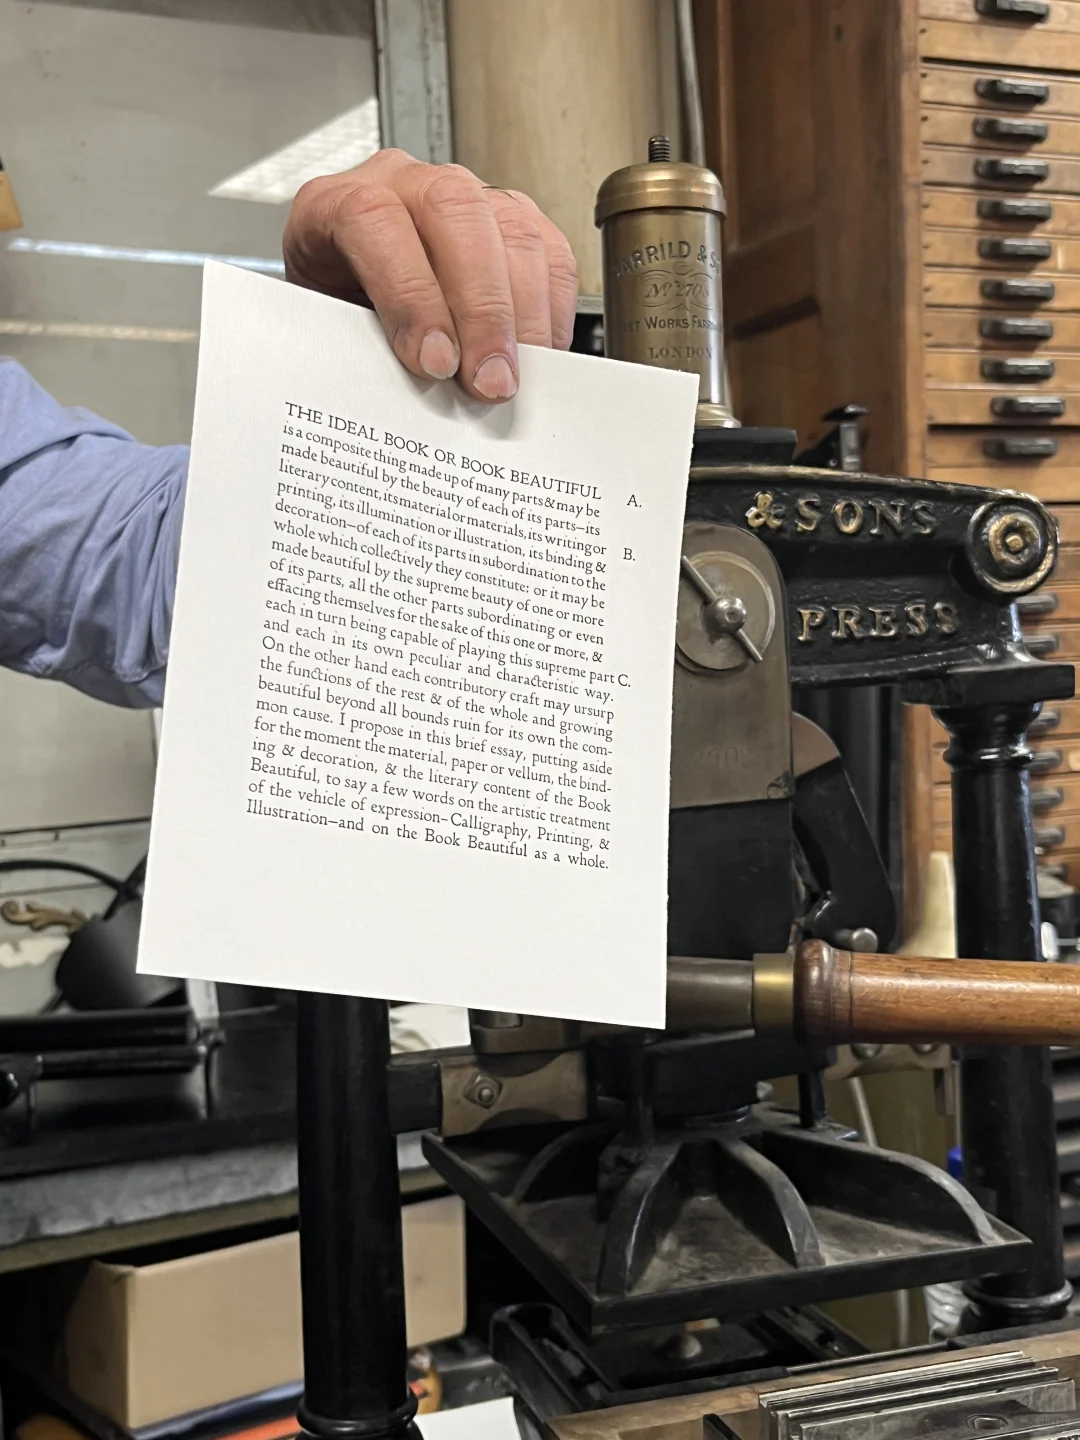 THE IDEAL BOOK OR BOOK BEAUTIFUL
is a composite thing made up of many parts & may be A.
made beautiful by the beauty of each of its parts—its
literary content, its material or materials, its writing or
printing, its illumination or illustration, its binding & B.
decoration—of each of its parts in subordination to the
whole which collectively they constitute: or it may be
made beautiful by the supreme beauty of one or more
of its parts, all the other parts subordinating or even
effacing themselves for the sake of this one or more, &
each in turn being capable of playing this supreme part C.
and each in its own peculiar and characteristic way.
On the other hand each contributory craft may usurp
the functions of the rest & of the whole and growing
beautiful beyond all bounds ruin for its own the com-
mon cause. I propose in this brief essay, putting aside
for the moment the material, paper or vellum, the bind-
ing & decoration, & the literary content of the Book
Beautiful, to say a few words on the artistic treatment
of the vehicle of expression—Calligraphy, Printing, &
Illustration—and on the Book Beautiful as a whole.
&
No 2708
WORKS
LONDON
& SONS
PRESS